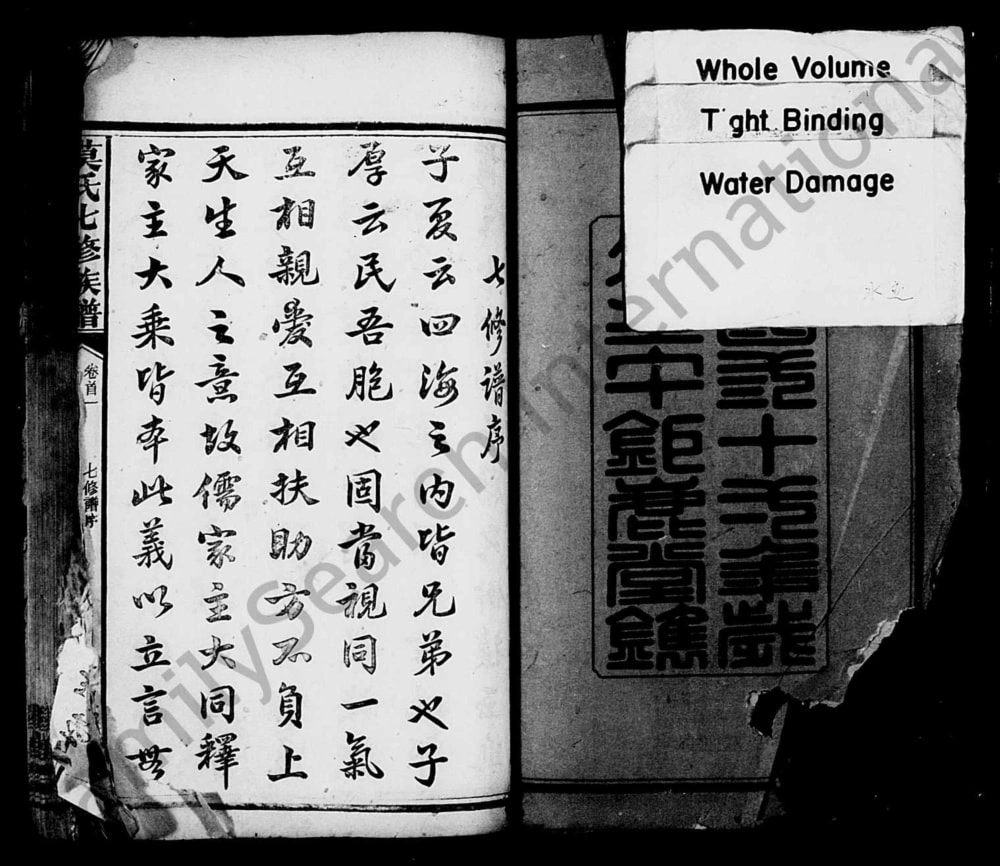 Whole Volume
T ght Binding
Water Damage
國弎十弌年歲
壬午鉅鹿堂鐫
七修譜序
子夏云四海之內皆兄弟也子
厚云民吾胞也固當視同一氣
互相親愛互相扶助方不負上
天生人之意故儒家主大同釋
家主大乘皆本此義以立言無
莫氏七修族譜
卷首一
七修譜序
FamilySearch International